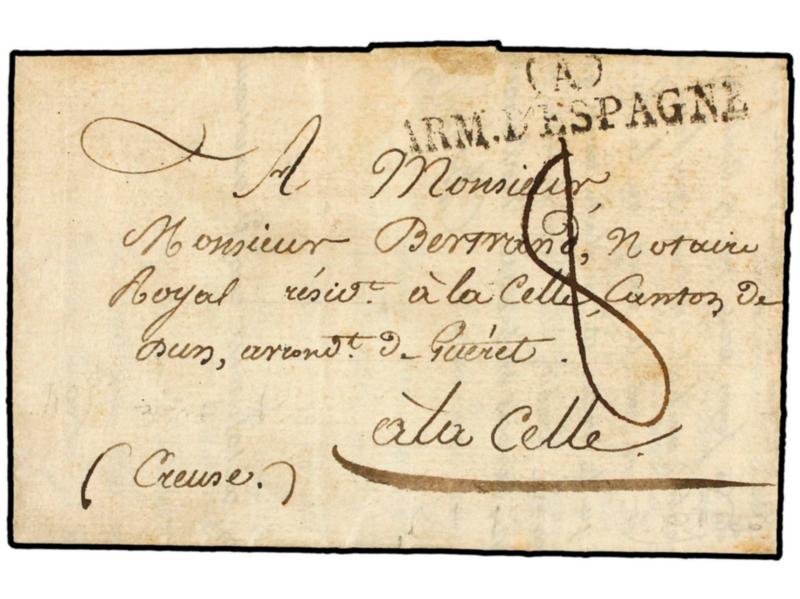 (A)
ARM. D'ESPAGNE
A Monsieur
Monsieur Bertrand, Notaire
Royal résidt. à la Celle, Canton de
Dun, arrondt. de Guéret.
à la Celle
(Creuse.)
8